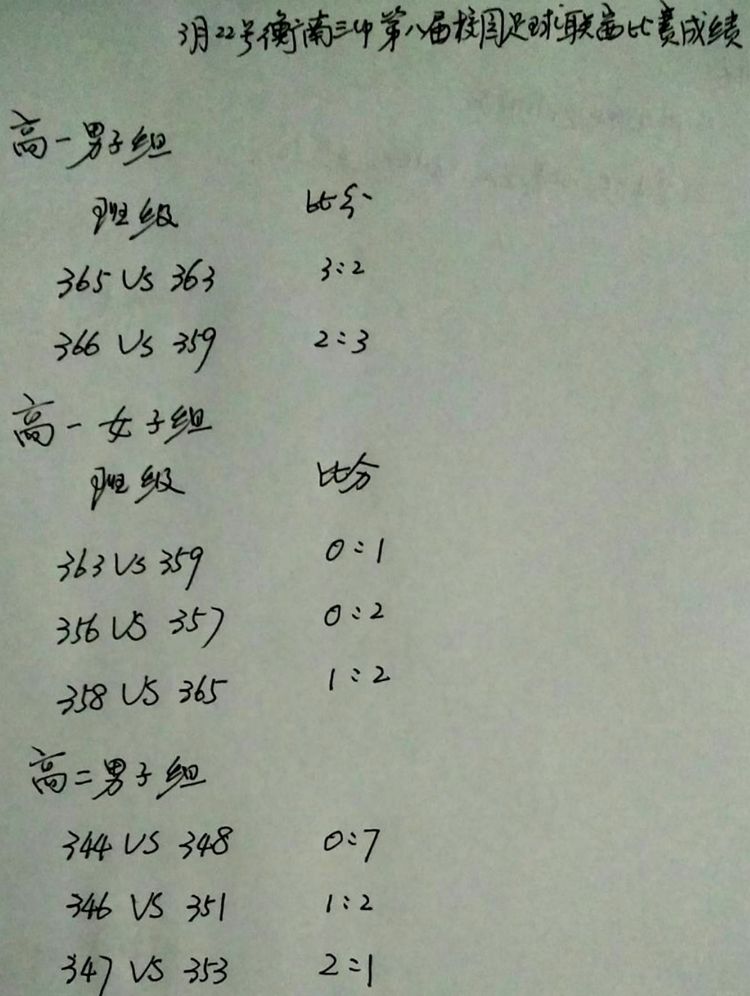 3月22号衡南三中第八届校园足球联赛比赛成绩
高一男子组
班级 比分
365 VS 363 3:2
366 VS 359 2:3
高一女子组
班级 比分
363 VS 359 0:1
356 VS 357 0:2
358 VS 365 1:2
高二男子组
344 VS 348 0:7
346 VS 351 1:2
347 VS 353 2:1